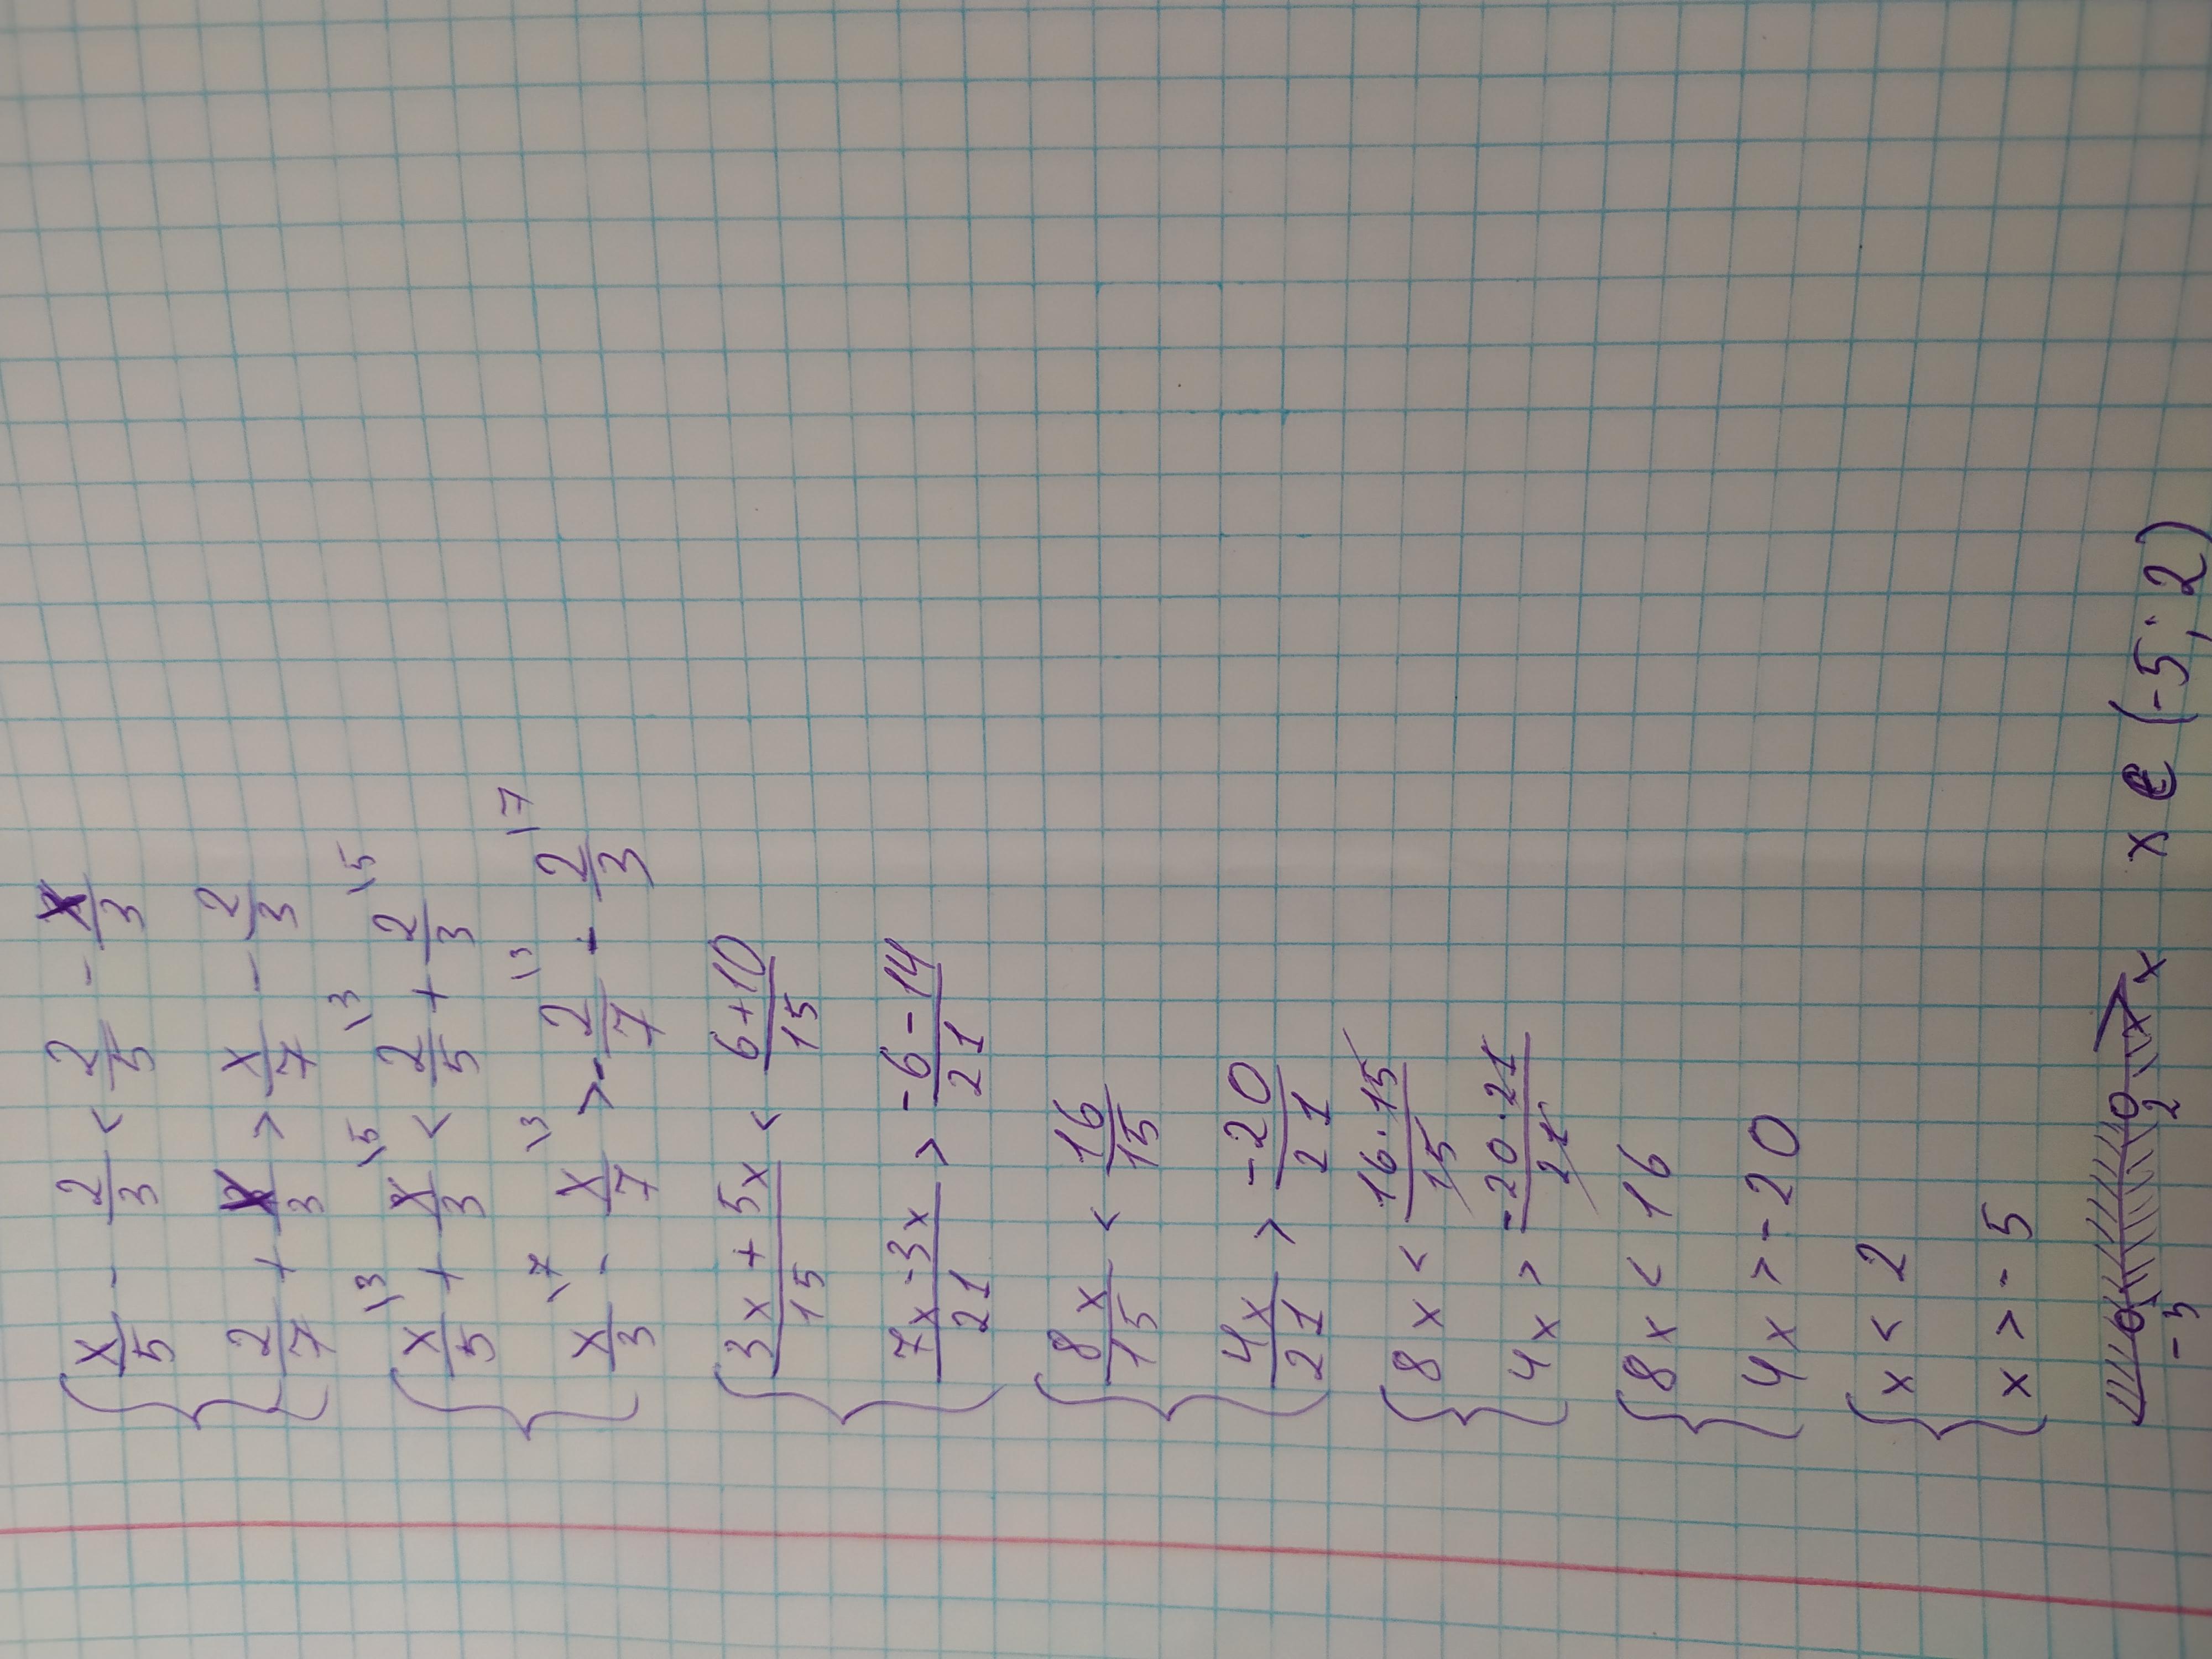 { x/5 - 2/3 < 2/5 - x/3
2/7 + x/3 > x/7 - 2/3
{ x/5 \3 + x/3 \5 < 2/5 \3 + 2/3 \5
x/3 \7 - x/7 \3 > -2/7 \3 - 2/3 \7
{ 3x + 5x/15 < 6+10/15
7x - 3x/21 > -6-14/21
{ 8x/15 < 16/15
4x/21 > -20/21
{ 8x < 16·15/15
4x > -20·21/21
{ 8x < 16
4x > -20
{ x < 2
x > -5
-5 2 x x ∈ (-5; 2)